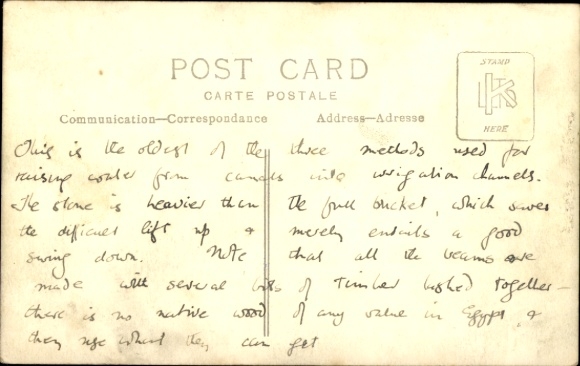 POST CARD
CARTE POSTALE
Communication—Correspondance
Address—Adresse
STAMP
HERE
This is the oldest of the three methods used for
raising water from canals into irrigation channels.
The stone is heavier than the full bucket, which saves
the difficult lift up & merely entails a good
swing down. Note that all the beams are
made with several bits of timber lashed together —
there is no native wood of any value in Egypt &
they use what they can get